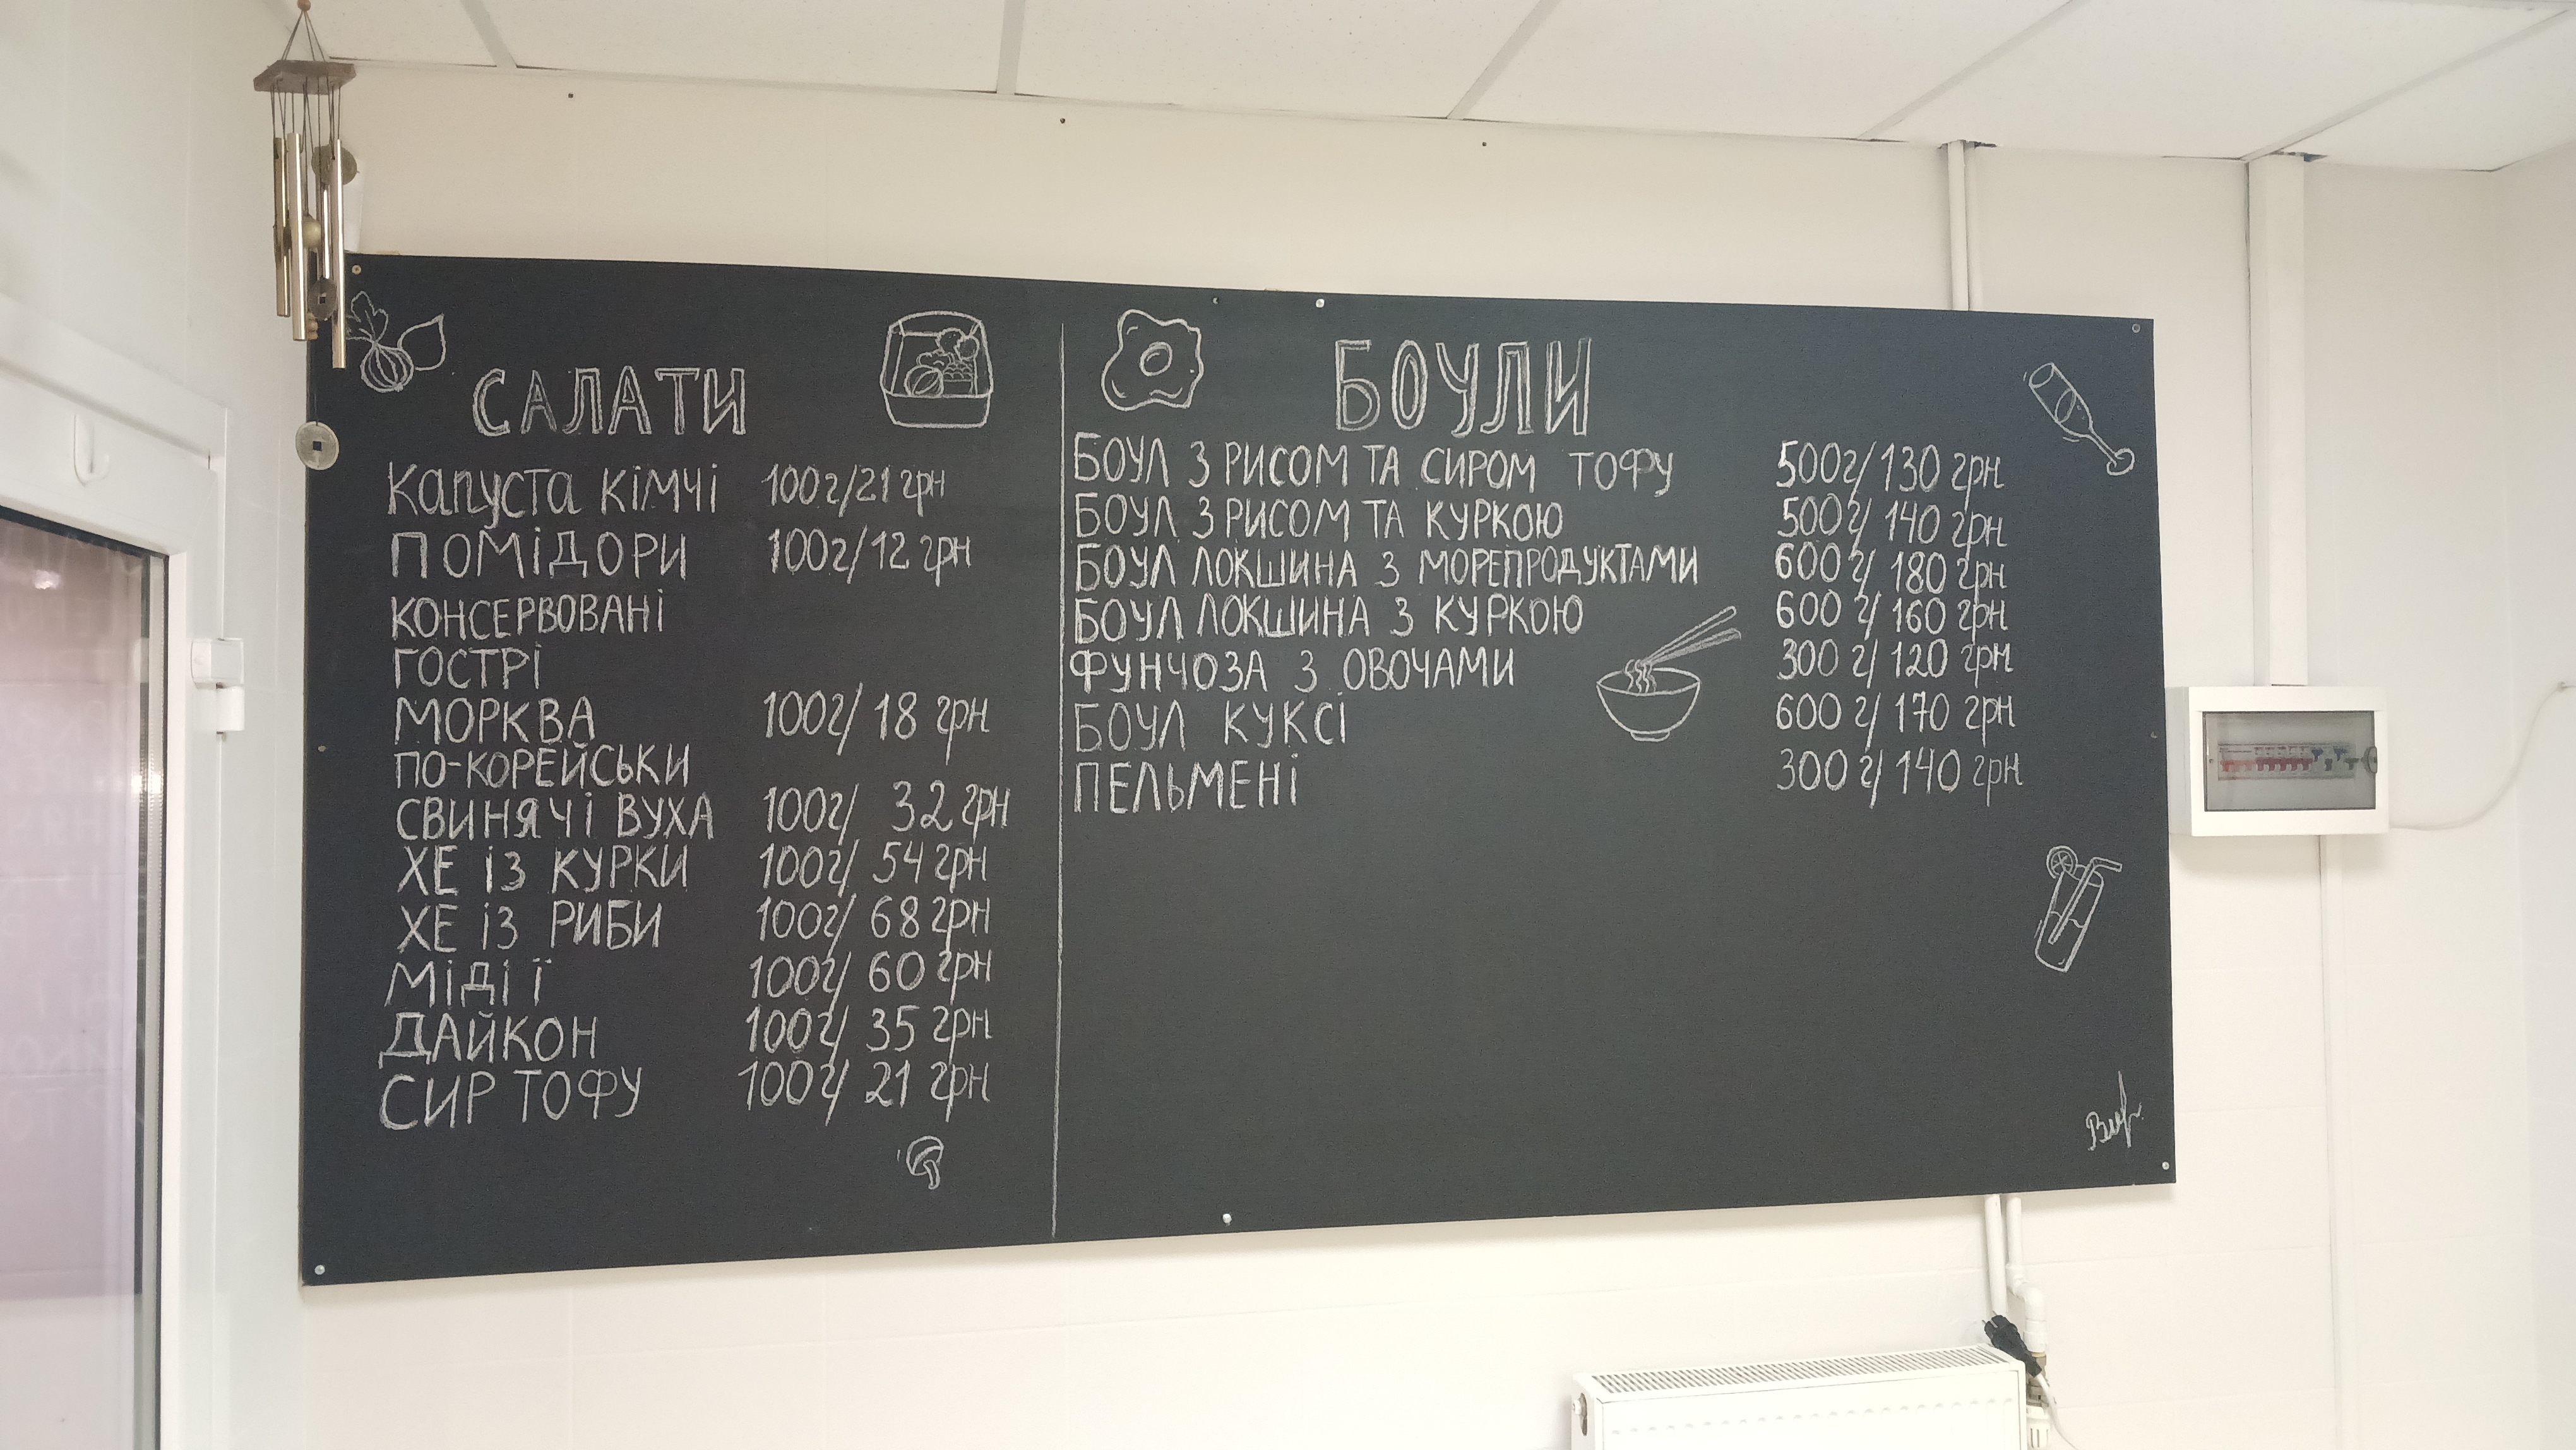 САЛАТИ
Капуста кімчі 100г/21 грн
ПОМІДОРИ 100г/12 грн
КОНСЕРВОВАНІ
ГОСТРІ
МОРКВА 100г/ 18 грн
ПО-КОРЕЙСЬКИ
СВИНЯЧІ ВУХА 100г/ 32 грн
ХЕ ІЗ КУРКИ 100г/ 54 грн
ХЕ ІЗ РИБИ 100г/ 68 грн
МІДІЇ 100г/ 60 грн
ДАЙКОН 100г/ 35 грн
СИР ТОФУ 100г/ 21 грн
БОУЛИ
БОУЛ З РИСОМ ТА СИРОМ ТОФУ 500г/130 грн
БОУЛ З РИСОМ ТА КУРКОЮ 500г/ 140 грн
БОУЛ ЛОКШИНА З МОРЕПРОДУКТАМИ 600 г/ 180 грн
БОУЛ ЛОКШИНА З КУРКОЮ 600 г/ 160 грн
ФУНЧОЗА З ОВОЧАМИ 300 г/ 120 грн
БОУЛ КУКСІ 600 г/ 170 грн
ПЕЛЬМЕНІ 300 г/ 140 грн